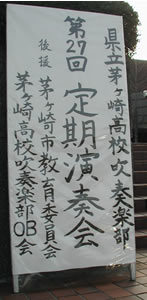 県立茅ヶ崎高校吹奏楽部
第27回 定期演奏会
後援 茅ヶ崎市教育委員会
茅ヶ崎高校吹奏楽部OB会